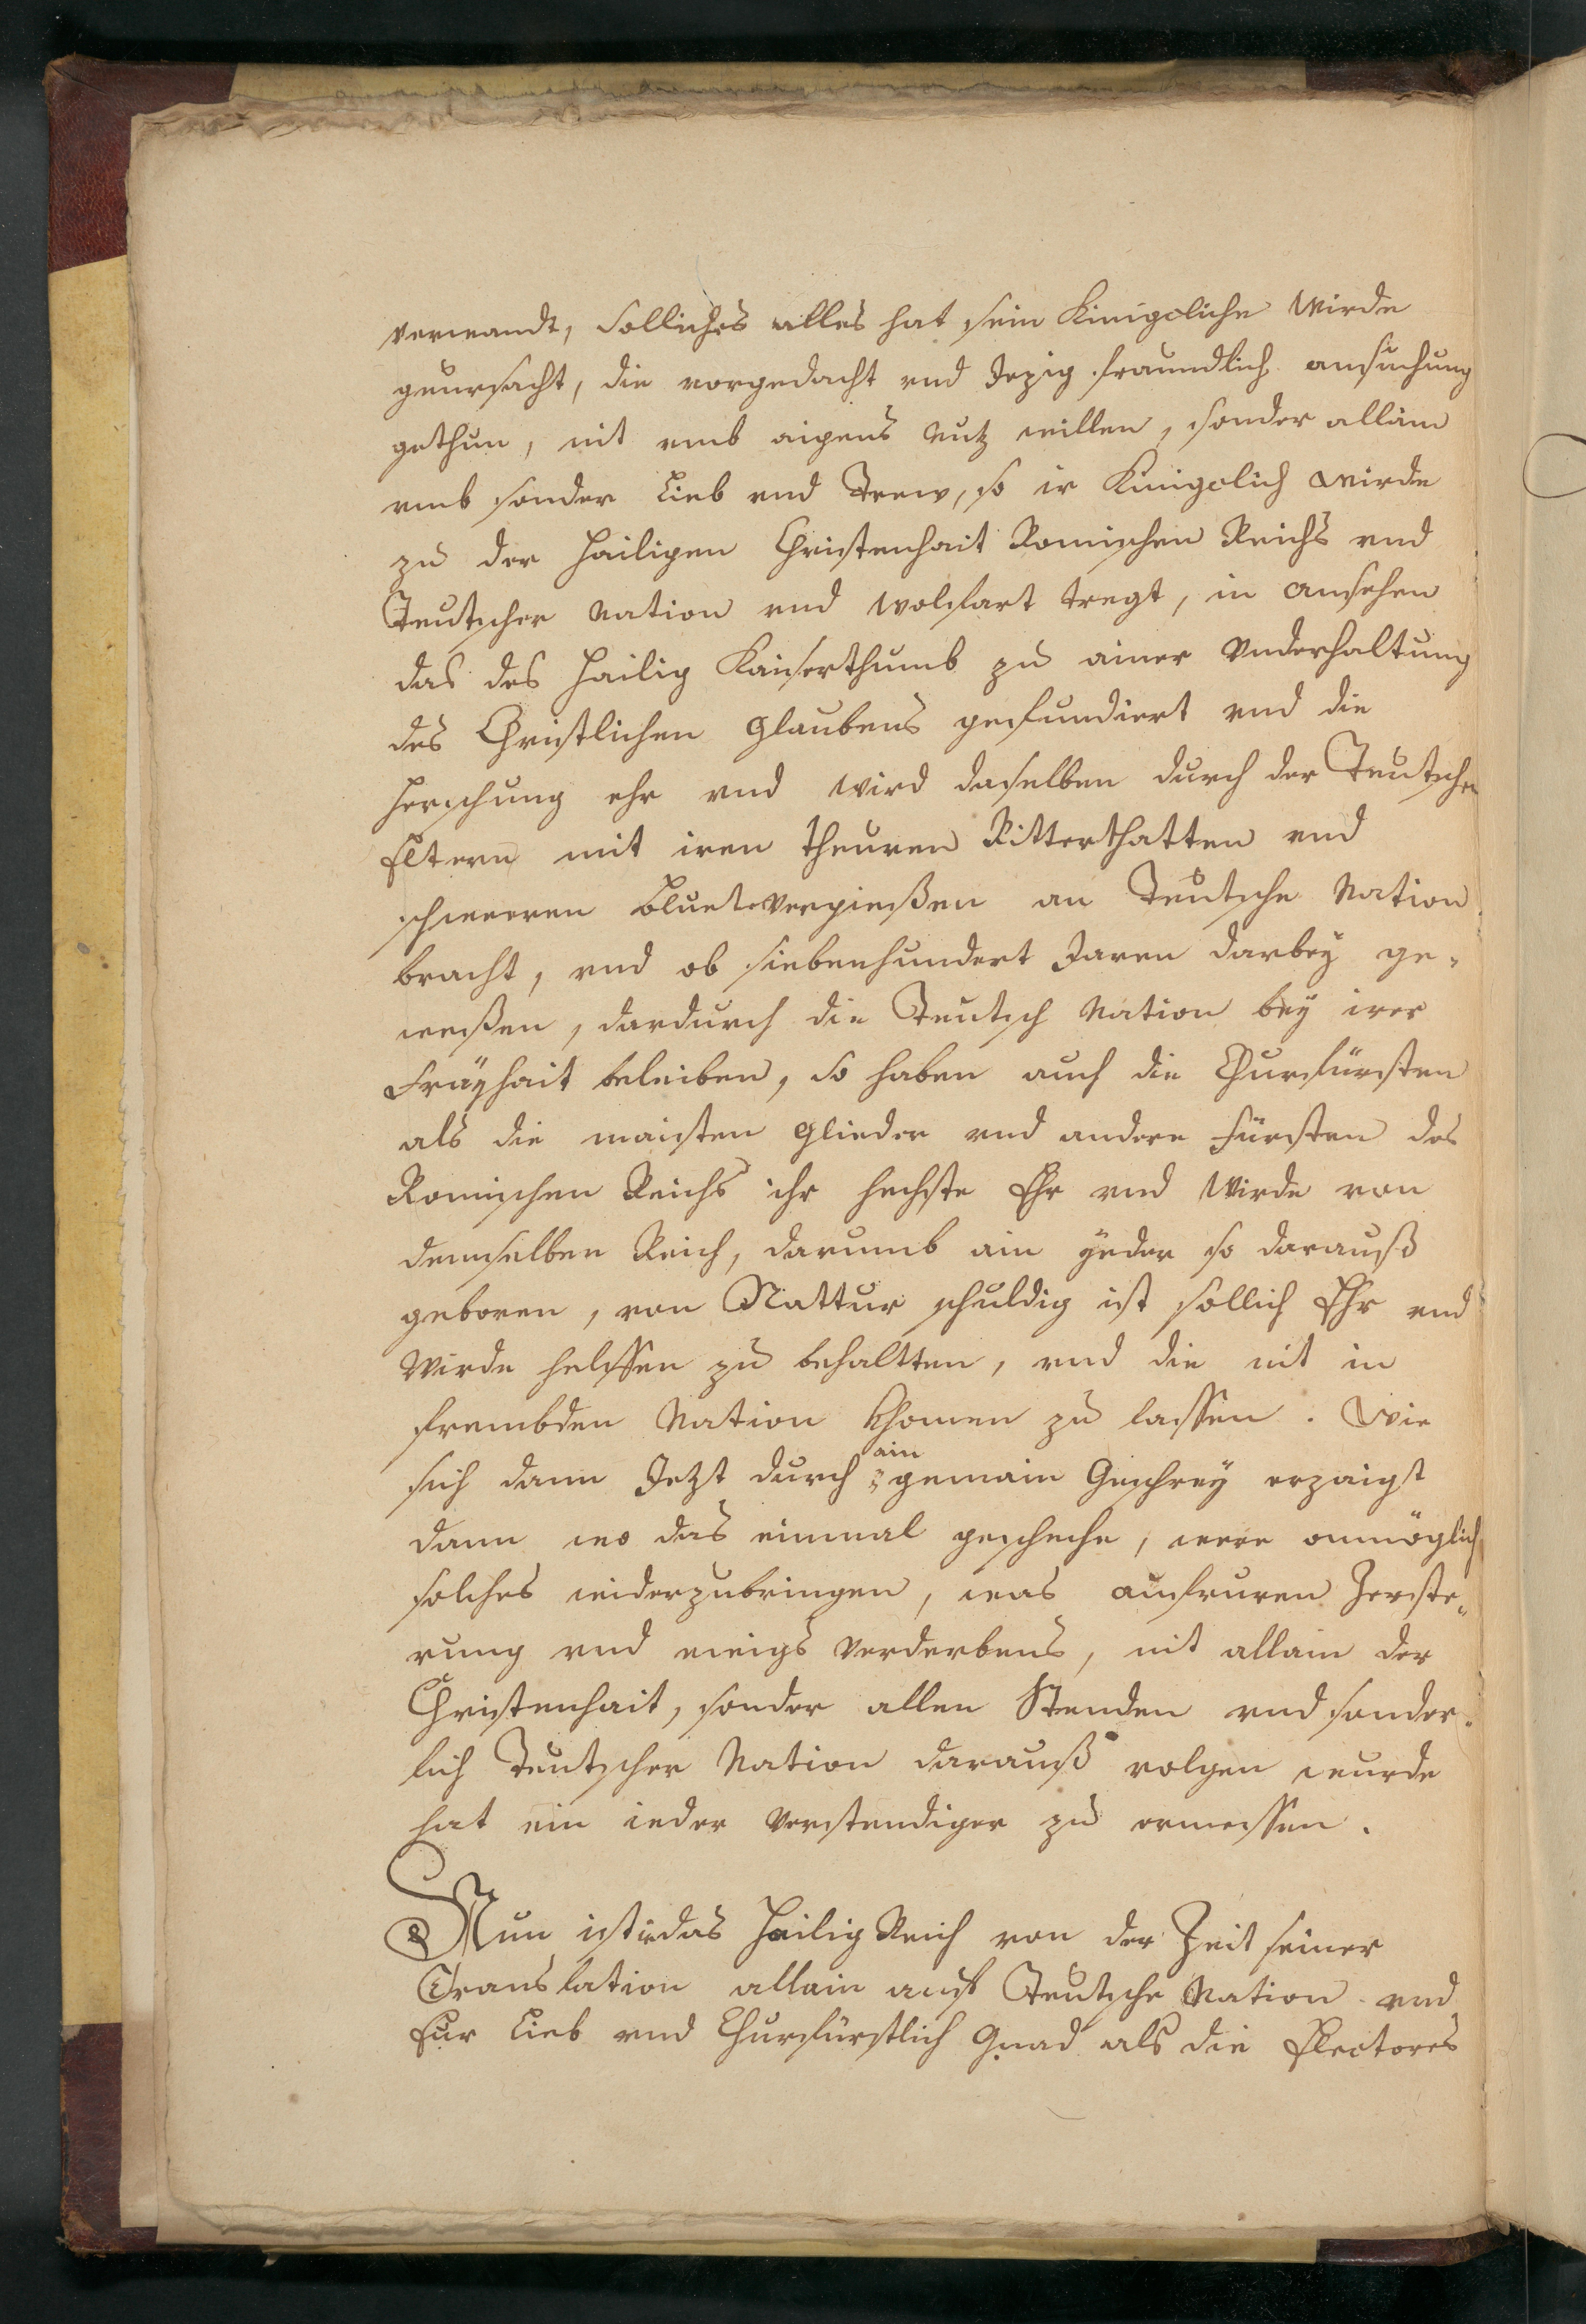 verwandt, Solliches alles hat sein Kinigcliche Wirde
geursacht, die vorgedacht vnd Jezig fraundlich ansuchung
gethun, nit vmb aigens Nutz willen, sonder allain
vmb sonder Lieb vnd Trew, so ir Kinigclich wirde
zu der Hailigen Christenhait Romischen Reichs vnd
Teutscher Nation vnd wolfart tregt, in ansehen
das des Hailig Kaiserthumb zu ainer Vnderhaltung
des Christlichen Glaubens gefundiert vnd die
Herschung ehr vnd wird daselben durch der Teutschen
Eltern mit iren theuren Ritterthatten vnd
schweren Bluetvergießen an Teutsche Nation
bracht, vnd ob siebenhundert Jaren darbey ge-
weßen, dardurch die Teutsch Nation bey irer
Fräyhait beleiben, so haben auch die Churfürsten
als die maisten Glieder vnd andere Fürsten des
Romischen Reichs ihr hechste Ehr vnd Wirde von
demselben Reich, darumb ain yeder so darauß
geboren, von Nattur schuldig ist sollich Ehr vnd
Wirde helffen zu behaltten, vnd die nit in
frembden Nation khomen zu lassen. Wie
sich dann Jetzt durch ain gemain Geschrey erzaigt
dann wo das einmal gescheche, were onmöglich
solches widerzubringen, was aufruren Zerste-
rung vnd ewigs Verderbens, nit allain der
Christenhait, sonder allen Stenden vnd sonder-
lich Teutscher Nation darauß volgen wurde
hat ein ieder Verstendiger zu ermessen.
Nun ist das Hailig Reich von der Zeit seiner
Translation allain auf Teutsche Nation vnd
Eur Lieb vnd Churfürstlich Gnad als die Electores